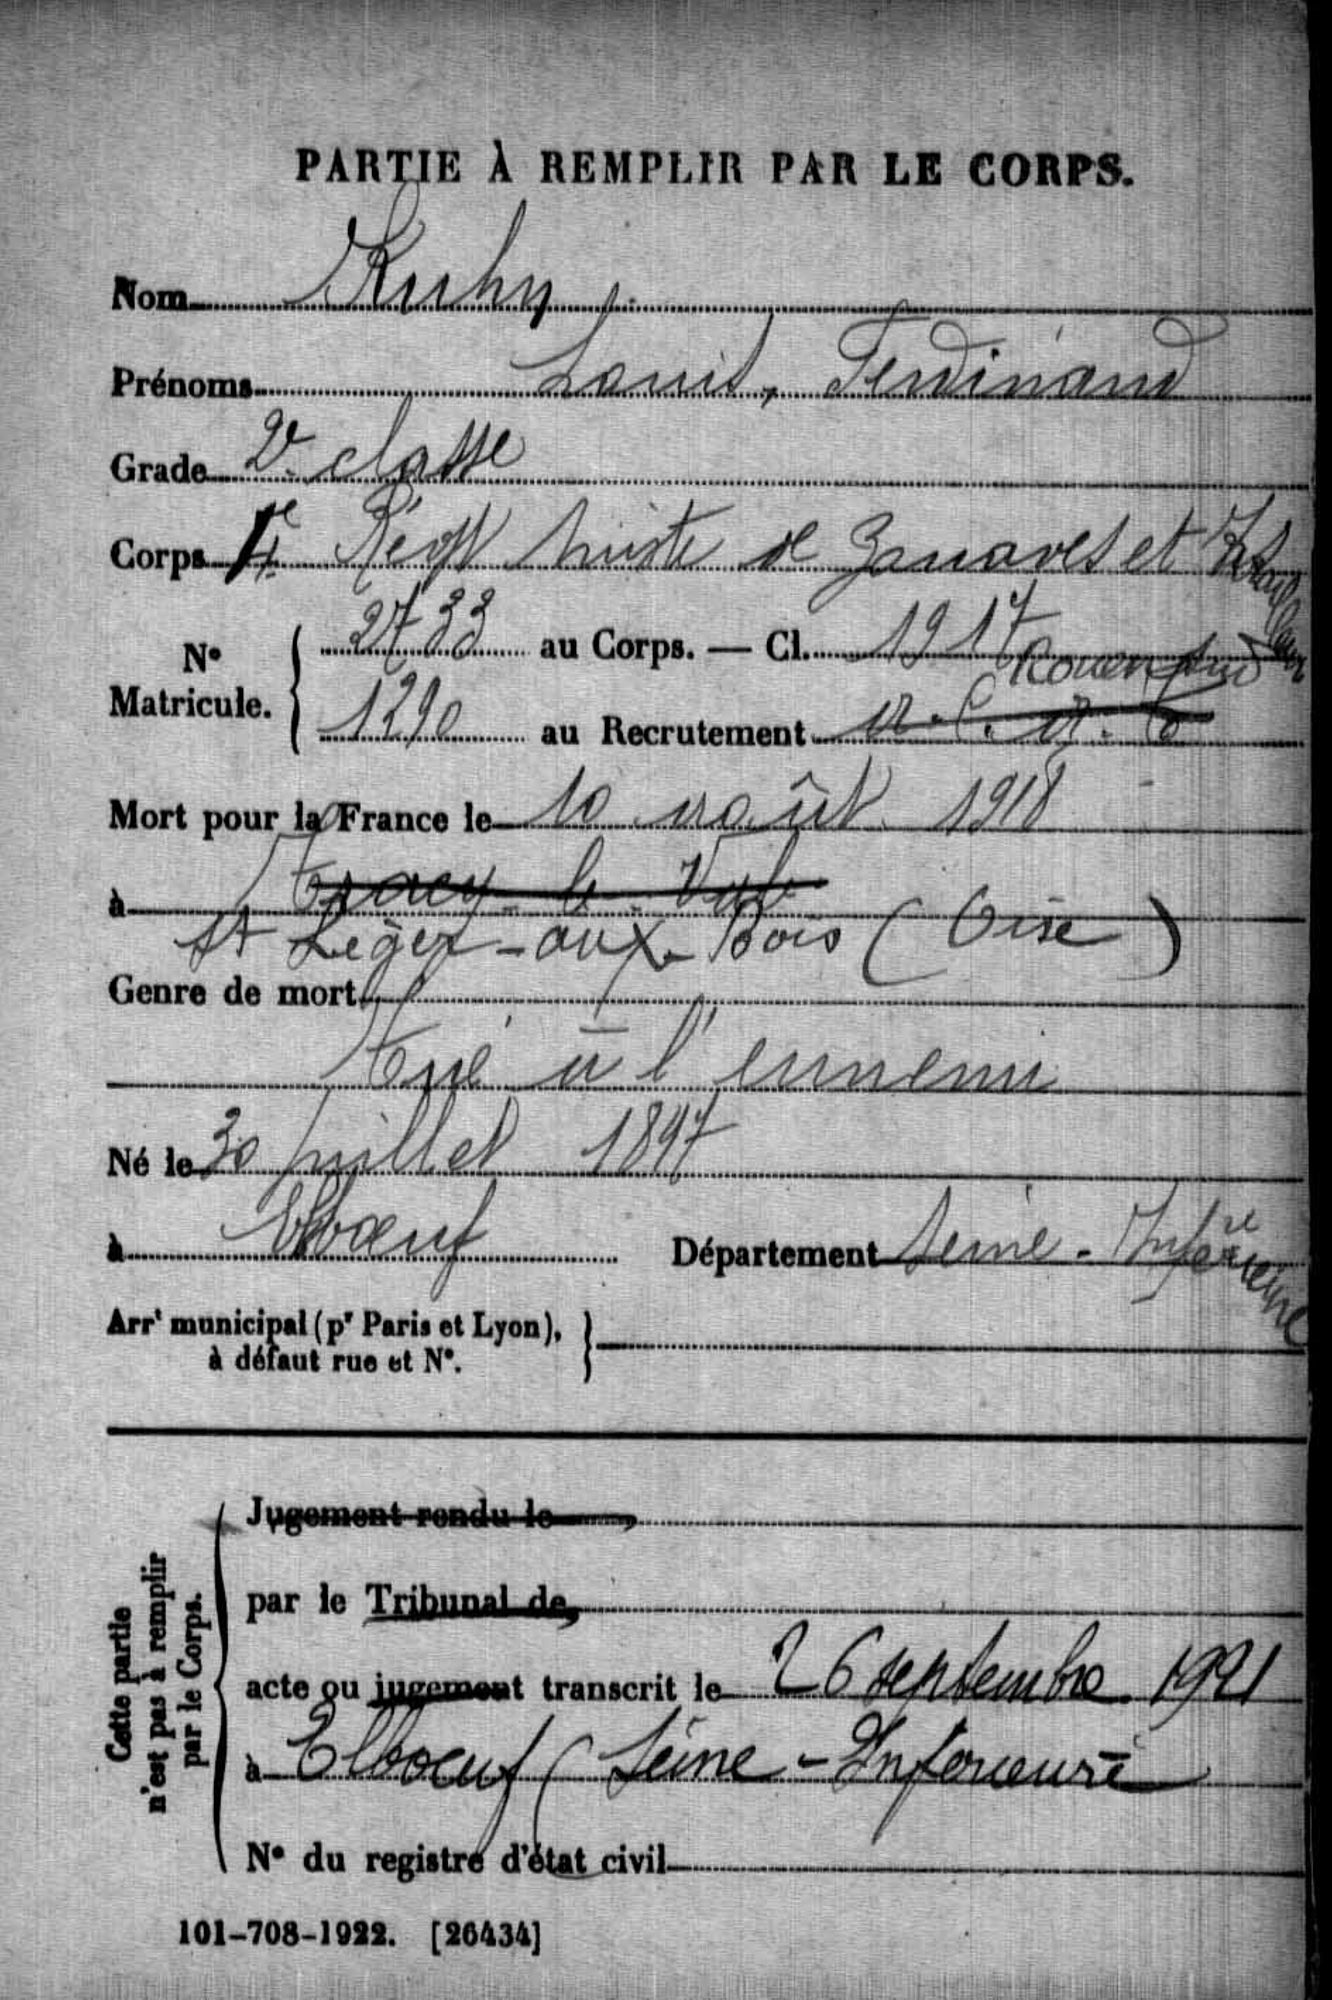 PARTIE À REMPLIR PAR LE CORPS.
Nom Kuhn
Prénoms Louis, Ferdinand
Grade 2e classe
Corps 4e Régt mixte de Zouaves et Tirailleurs
N° Matricule. 2733 au Corps. — Cl. 1917
Rouen Sud
1290 au Recrutement
Mort pour la France le 10 août 1918
à Tracy-le-Val
St Léger-aux-Bois (Oise)
Genre de mort
tué à l'ennemi
Né le 30 juillet 1897
à Elbœuf Département Seine-Inférieure
Arrt municipal (pr Paris et Lyon),
à défaut rue et N°.
Cette partie
n'est pas à remplir
par le Corps.
Jugement rendu le
par le Tribunal de
acte ou jugement transcrit le 26 septembre 1921
à Elboeuf (Seine-Inférieure
N° du registre d'état civil
101-708-1922. [26434]